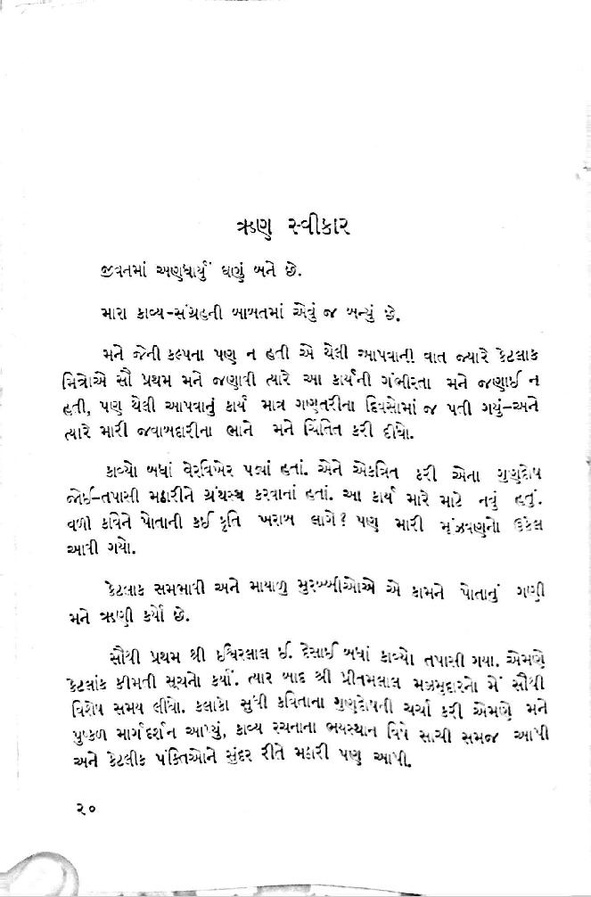 ઋણ સ્વીકાર
જીવનમાં અણધાર્યું ઘણું બને છે.
મારા કાવ્ય-સંગ્રહની બાબતમાં એવું જ બન્યું છે.
મને જેની કલ્પના પણ ન હતી એ થેલી આપવાની વાત જ્યારે કેટલાક
મિત્રોએ સૌ પ્રથમ મને જણાવી ત્યારે આ કાર્યની ગંભીરતા મને જણાઈ ન
હતી, પણ થેલી આપવાનું કાર્ય માત્ર ગણતરીના દિવસોમાં જ પતી ગયું-અને
ત્યારે મારી જવાબદારીના ભાને મને ચિંતિત કરી દીધો.
કાવ્યો બધાં વેરવિખેર પડ્યાં હતાં. એને એકત્રિત કરી એના ગુણદોષ
જોઈ-તપાસી મઠારીને ગ્રંથસ્થ કરવાનાં હતાં. આ કાર્ય મારે માટે નવું હતું.
વળી કવિને પોતાની કઈ કૃતિ ખરાબ લાગે? પણ મારી મૂંઝવણનો ઉકેલ
આવી ગયો.
કેટલાક સમભાવી અને માયાળુ મુરબ્બીઓએ એ કામને પોતાનું ગણી
મને ઋણી કર્યો છે.
સૌથી પ્રથમ શ્રી ઈશ્વરલાલ ઈ. દેસાઈ બધાં કાવ્યો તપાસી ગયા. એમણે
કેટલાંક કીમતી સૂચનો કર્યાં. ત્યાર બાદ શ્રી પ્રીતમલાલ મઝમુદારનો મેં સૌથી
વિશેષ સમય લીધો. કલાકો સુધી કવિતાના ગુણદોષની ચર્ચા કરી એમણે મને
પુષ્કળ માર્ગદર્શન આપ્યું, કાવ્ય રચનાના ભયસ્થાન વિષે સાચી સમજ આપી
અને કેટલીક પંક્તિઓને સુંદર રીતે મઠારી પણ આપી.
૨૦